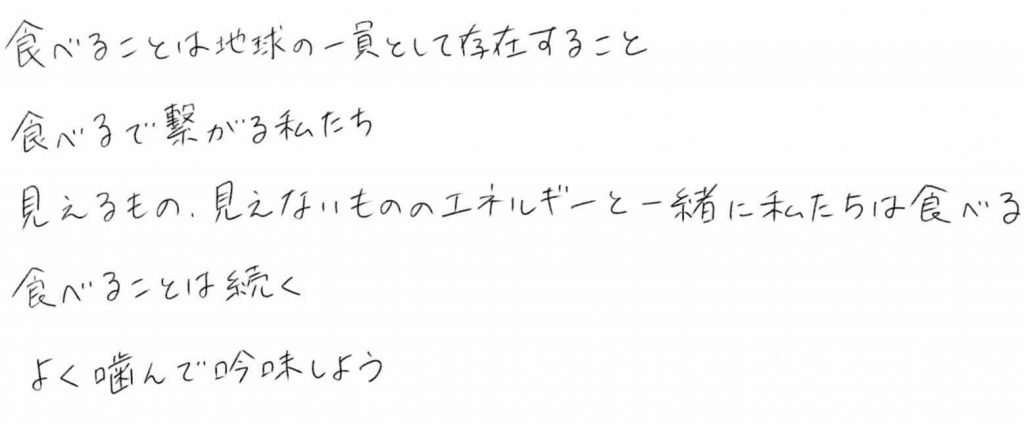 食べることは地球の一員として存在すること
食べるで繋がる私たち
見えるもの、見えないもののエネルギーと一緒に私たちは食べる
食べることは続く
よく噛んで吟味しよう